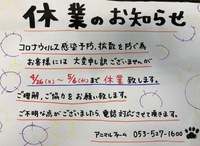 休業のお知らせ
コロナウィルス感染予防、拡散を防ぐ為
お客様には大変申し訳ございませんが
4/26(日)~5/6(水)まで休業致します。
ご理解、ご協力をお願い致します。
ご不明な点がございましたら、電話対応させて頂きます。
アニマルファーム 053-527-1600